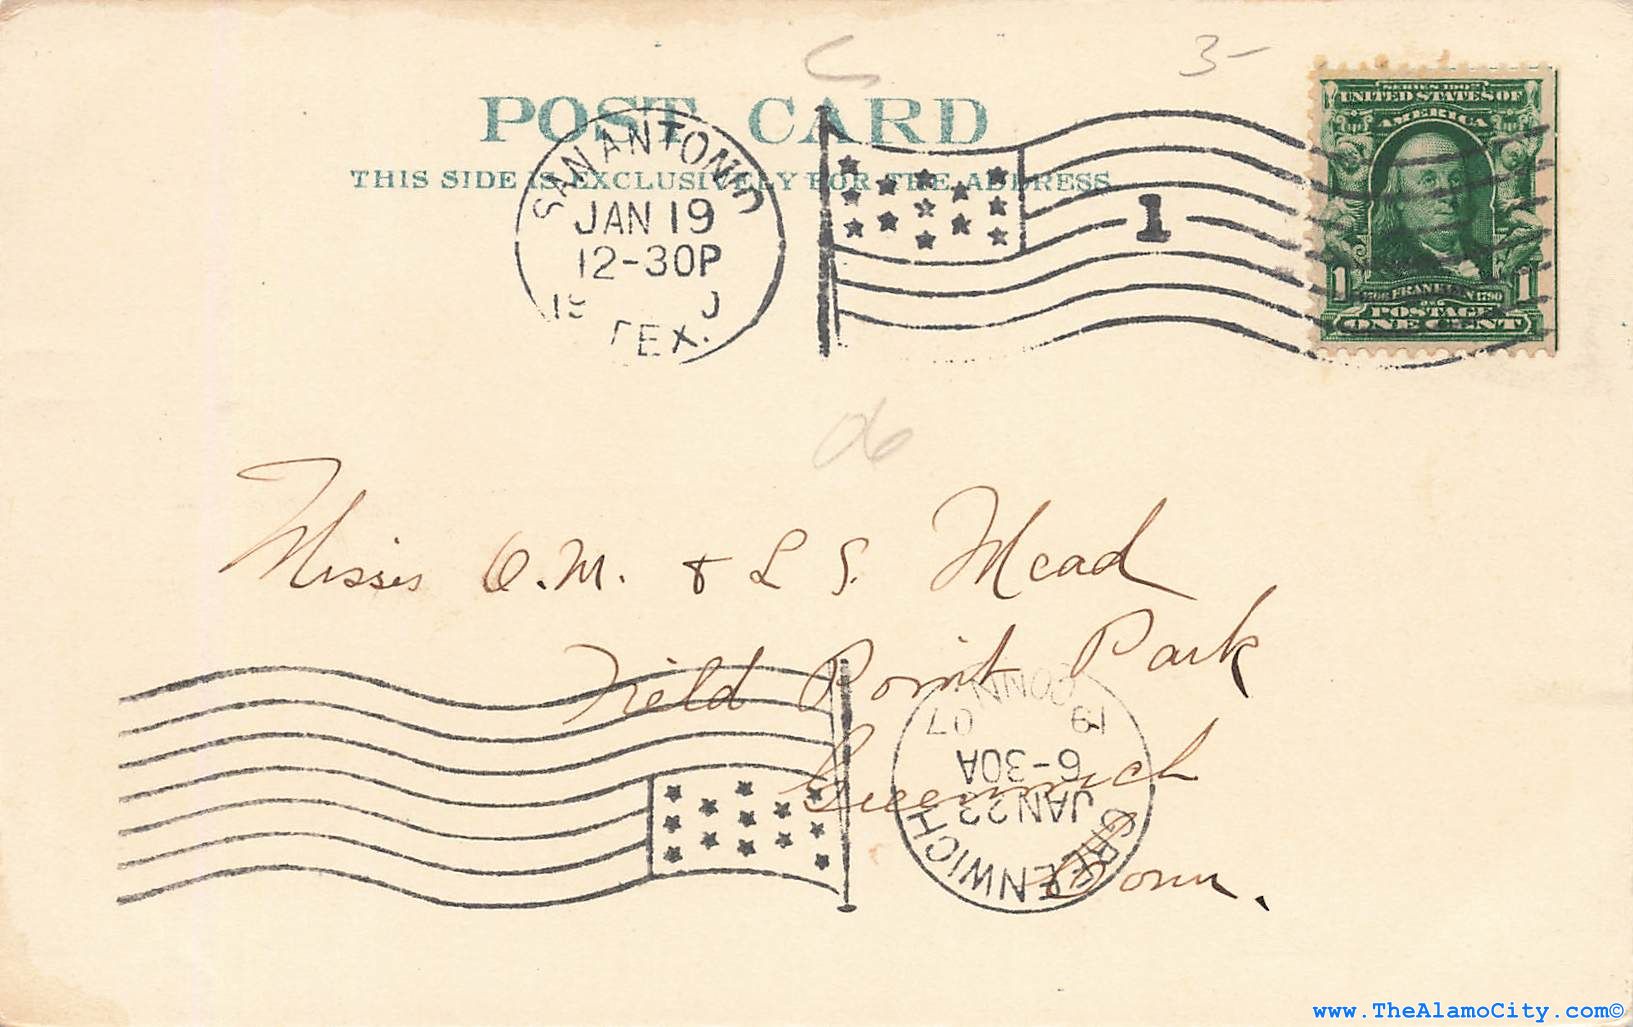 3-
POST CARD
THIS SIDE IS EXCLUSIVELY FOR THE ADDRESS
SAN ANTONIO
JAN 19
12-30P
19
TEX.
1
SERIES 1902
UNITED STATES OF
AMERICA
1706 FRANKLIN 1790
1 1
POSTAGE
ONE CENT
06
Misses O.M. & L S. Mead
Field Point Park
Greenwich
Conn.
GREENWICH
JAN 23
6-30A
19 07
CONN.
www.TheAlamoCity.com©